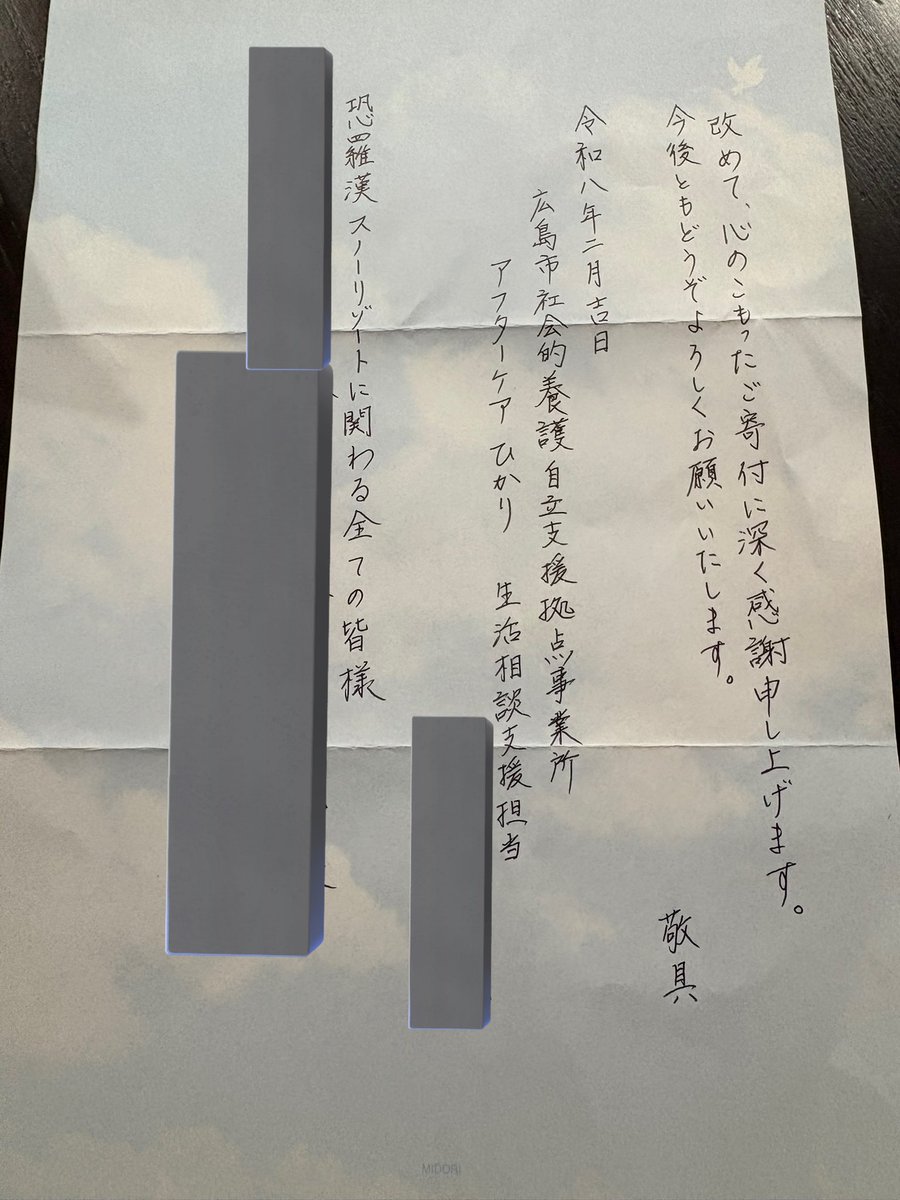 改めて、心のこもったご寄付に深く感謝申し上げます。
今後ともどうぞよろしくお願いいたします。
敬具
令和八年二月吉日
広島市社会的養護自立支援拠点事業所
アフターケア ひかり 生活相談支援担当
恐羅漢スノーリゾートに関わる全ての皆様
MIDORI